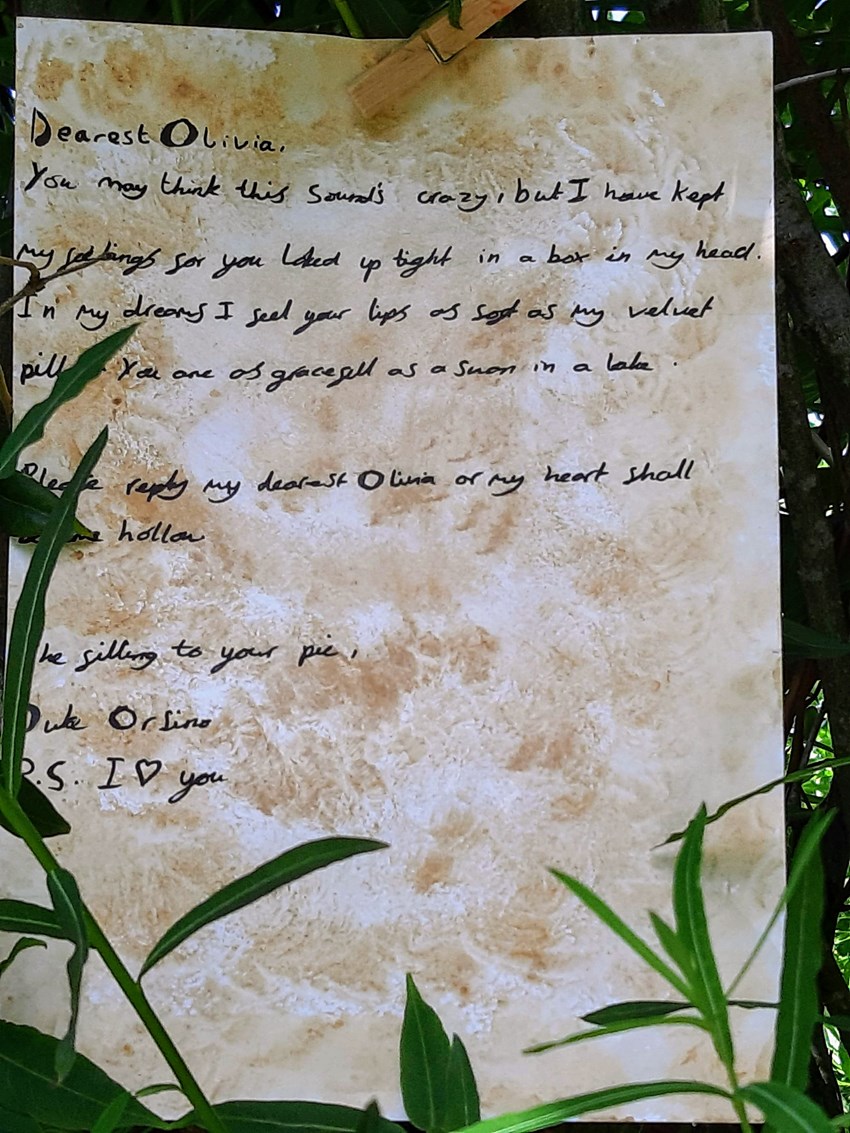 Dearest Olivia,
You may think this sounds crazy, but I have kept
my feelings for you locked up tight in a box in my head.
In my dreams I feel your lips as soft as my velvet
You are as gracefull as a swan in a lake.
Please reply my dearest Olivia or my heart shall
hollow
The filling to your pie,
Duke Orsino
P.S. I ♡ you